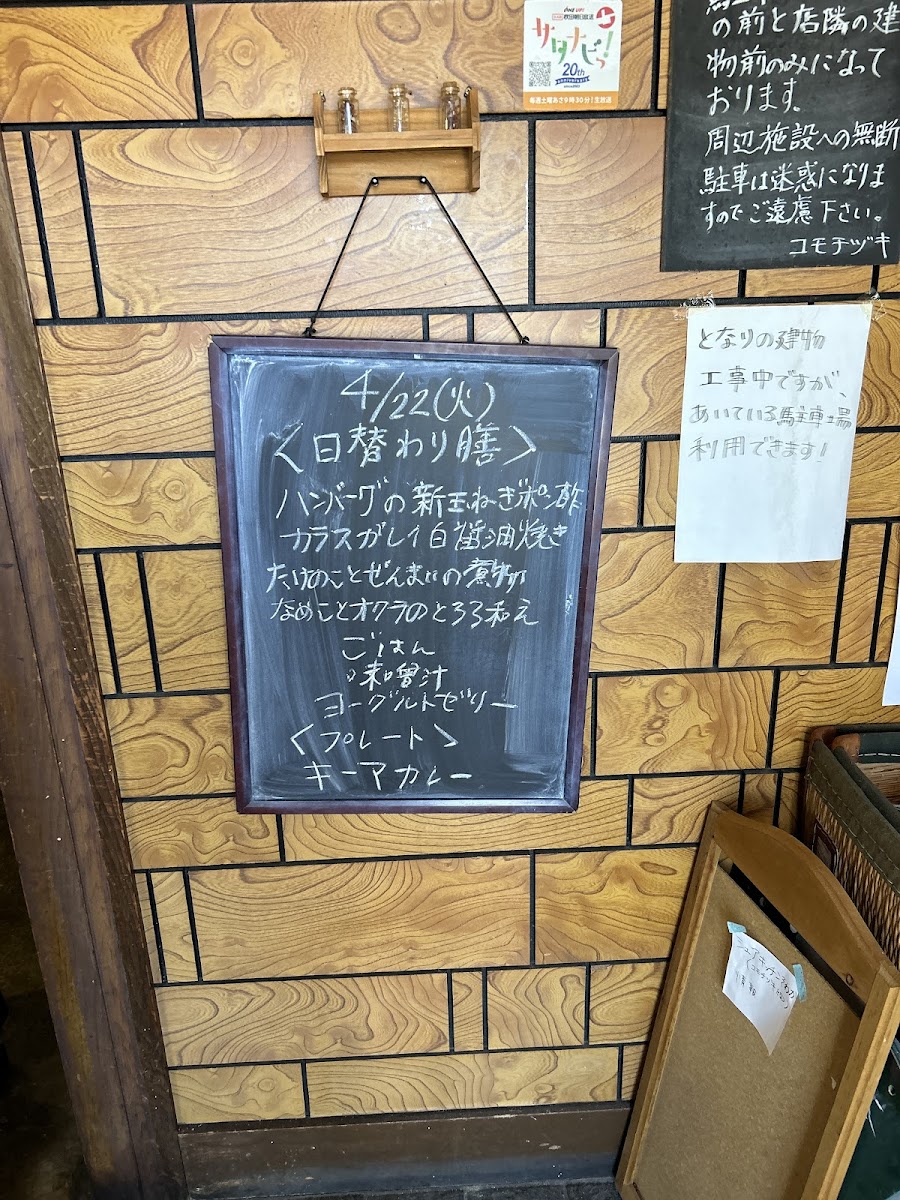 サタナビっ!
20th
anniversary
毎週土曜あさ9時30分!生放送
の前と店隣の建
物前のみになって
おります。
周辺施設への無断
駐車は迷惑になりま
すのでご遠慮下さい。
コモチヅキ
となりの建物
工事中ですが、
あいている駐車場
利用できます!
4/22(火)
<日替わり膳>
ハンバーグの新玉ねぎポン酢
カラスガレイ白醤油焼き
たけのことぜんまいの煮物
なめことオクラのとろろ和え
ごはん
味噌汁
ヨーグルトゼリー
<プレート>
キーマカレー